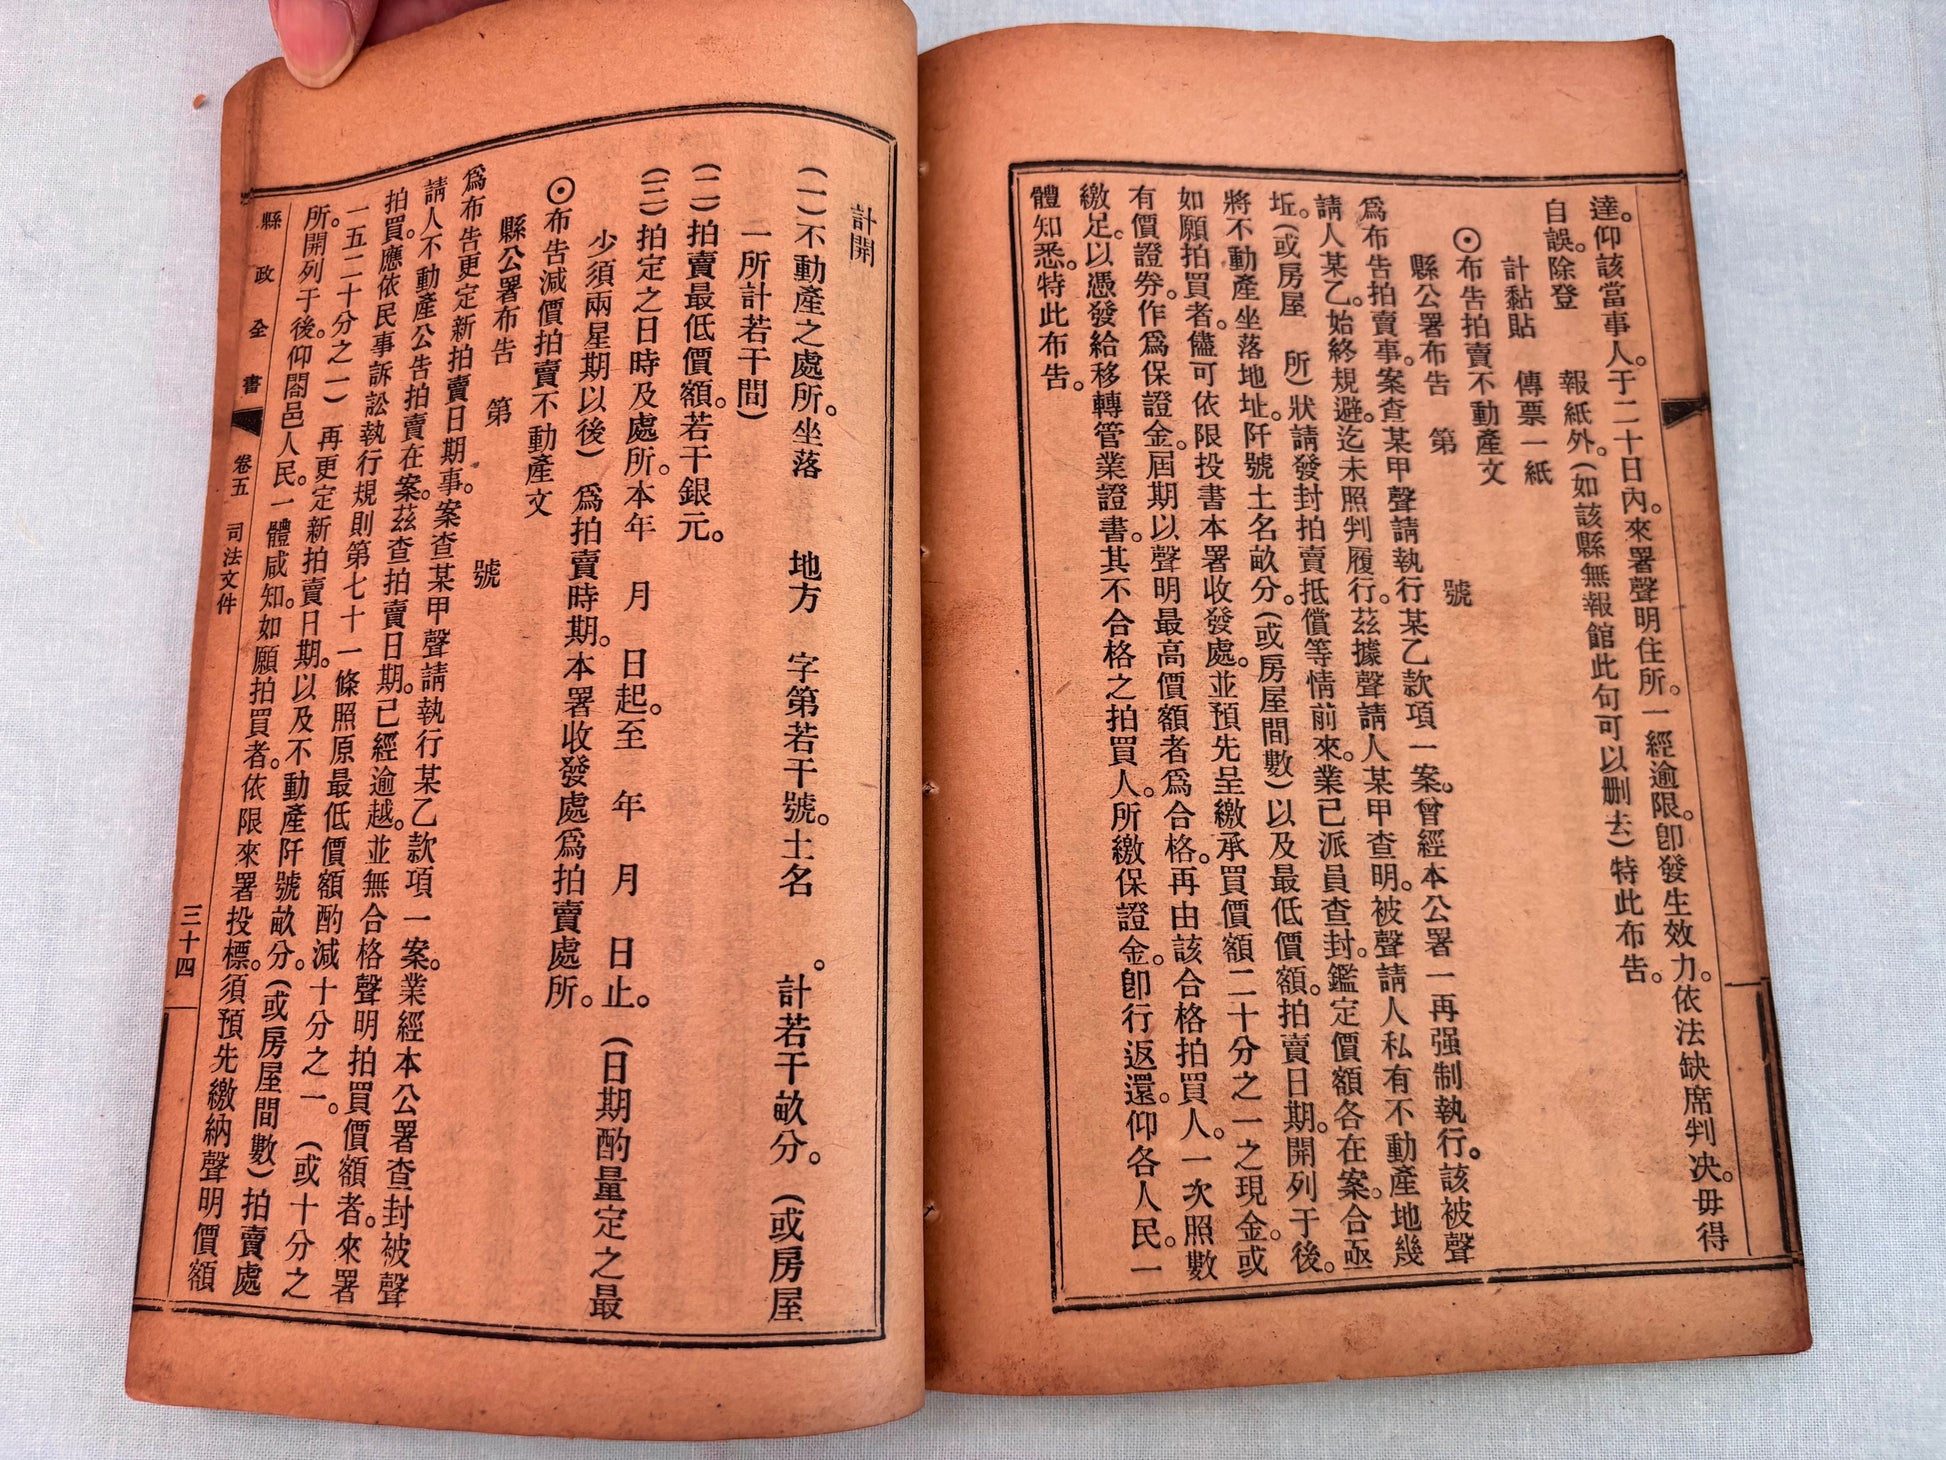 達。仰該當事人。于二十日內。來署聲明住所。一經逾限。卽發生效力。依法缺席判決。毋得
自誤。除登　報紙外。(如該縣無報館此句可以删去)特此布告。
計黏貼　傳票一紙
⊙布告拍賣不動產文
縣公署布告　第　號
爲布告拍賣事。案查某甲聲請執行某乙款項一案。曾經本公署一再强制執行。該被聲
請人某乙。始終規避。迄未照判履行。茲據聲請人某甲查明。被聲請人私有不動產地幾
坵。(或房屋　所)狀請發封拍賣抵償等情前來。業已派員查封。鑑定價額各在案。合亟
將不動產坐落地址。阡號土名畝分。(或房屋間數)以及最低價額。拍賣日期。開列于後。
如願拍買者。儘可依限投書本署收發處。並預先呈繳承買價額二十分之一之現金。或
有價證券。作爲保證金。屆期以聲明最高價額者爲合格。再由該合格拍買人。一次照數
繳足。以憑發給移轉管業證書。其不合格之拍買人。所繳保證金。卽行返還。仰各人民。一
體知悉。特此布告。
計開
(一)不動產之處所。坐落　地方　字第若干號。土名　。計若干畝分。(或房屋
一所計若干間)
(二)拍賣最低價額。若干銀元。
(三)拍定之日時及處所。本年　月　日起。至　年　月　日止。(日期酌量定之最
少須兩星期以後)爲拍賣時期。本署收發處爲拍賣處所。
⊙布告減價拍賣不動產文
縣公署布告　第　號
爲布告更定新拍賣日期事。案查某甲聲請執行某乙款項一案。業經本公署查封被聲
請人不動產公告拍賣在案。茲查拍賣日期。已經逾越。並無合格聲明拍買價額者。來署
拍買。應依民事訴訟執行規則第七十一條照原最低價額酌減十分之一。(或十分之
一五二十分之一)再更定新拍賣日期。以及不動產阡號畝分。(或房屋間數)拍賣處
所。開列于後。仰閤邑人民。一體咸知。如願拍買者。依限來署投標。須預先繳納聲明價額
縣政全書　卷五　司法文件　三十四